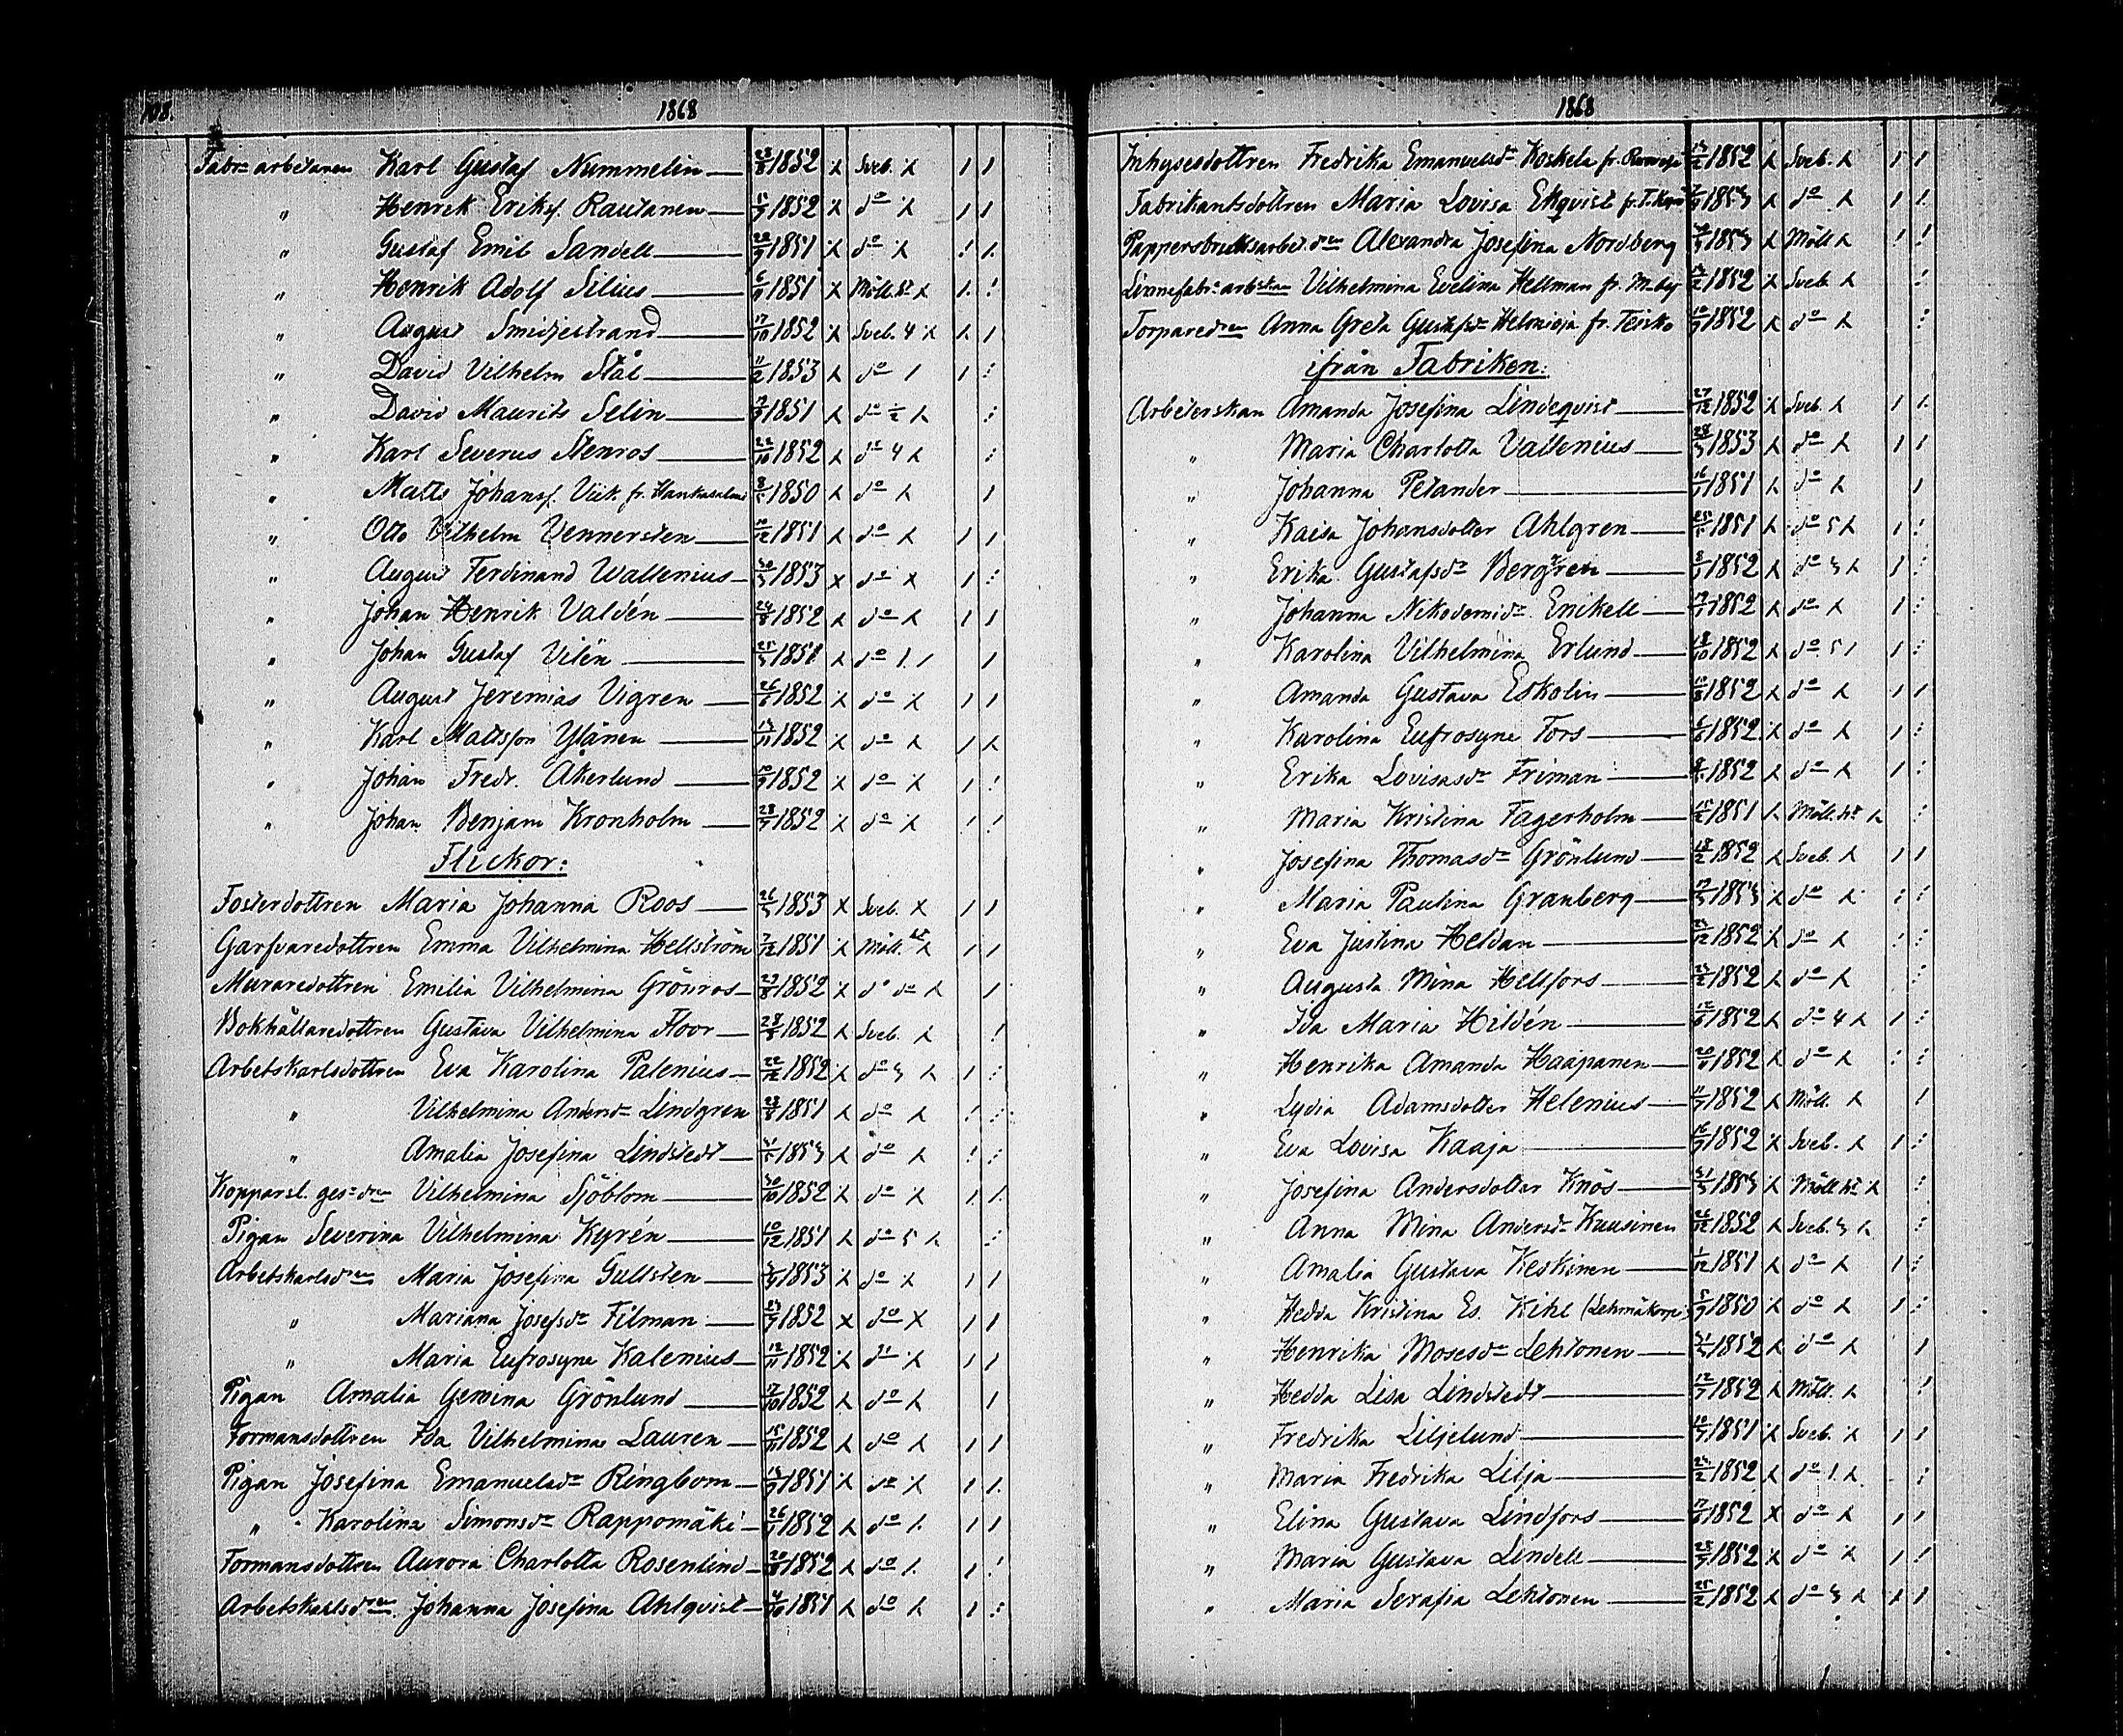 108.
1868
Fabr. arbetaren Karl Gustaf Nummelin 23/8 1852 Sveb.
" Henrik Eriksf. Rautanen 1852 do
" Gustaf Emil Sandell 1851 do
" Henrik Adolf Silius 1851 Möll.
" August Smidjestrand 17/10 1852 Sveb. 4
" David Vilhelm Stål 11/2 1853 do
" David Maurits Selin 1851 do
" Karl Severus Stenros 22/10 1852 do 4
" Matts Johansf. Viik fr. Hankasalmi 1850 do
" Otto Vilhelm Vennersten 10/12 1851 do
" August Ferdinand Wallenius 30/3 1853 do
" Johan Henrik Valdén 24/8 1852 do
" Johan Gustaf Vilén 1851 do
" August Jeremias Vigren 1852 do
" Karl Mattsson Ylänen 1852 do
" Johan Fredr. Åkerlund 1852 do
" Johan Benjam Kronholm 1852 do
Flickor:
Fosterdottren Maria Johanna Roos 26/3 1853 Sveb.
Garfvaredottren Emma Vilhelmina Hellström 7/12 1851 Möll.
Muraredottren Emilia Vilhelmina Grönros 1852 do do
Bokhållaredottren Gustava Vilhelmina Floor 1852 Sveb.
Arbetskarlsdottren Eva Karolina Palenius 22/12 1852 do 3
" Vilhelmina Andersdr Lindgren 23/8 1851 do
" Amalia Josefina Lindstedt 1853 do
Kopparsl. ges. dren Vilhelmina Sjöblom 30/10 1852 do
Pigan Severina Vilhelmina Kyrén 10/12 1851 do 5
Arbetskarlsdren Maria Josefina Gullsten 1853 do
" Mariana Josefsdr Filman 1852 do
" Maria Eufrosyne Kalenius 12/11 1852 do
Pigan Amalia Gemina Grönlund 17/10 1852 do
Formansdottren Ida Vilhelmina Lauren 1852 do
Pigan Josefina Emanuelsdr Ringbom 1851 do
" Karolina Simonsdr Rappomäki 1852 do
Formansdottren Aurora Charlotta Rosenlind 20/8 1852 do
Arbetskarlsdren Johanna Josefina Ahlqvist 4/10 1851 do
1868
Inhysesdottren Fredrika Emanuelsdr Koskela fr. 1852 Sveb.
Fabrikantsdottren Maria Lovisa Ekqvist fr. 1853 do
Pappersbruksarbet. dren Alexandra Josefina Nordberg 1853 Möll
Linnefabr. arbskan Vilhelmina Evelina Hellman fr. 1852 Sveb.
Torparedren Anna Greta Gustafsdr Helmioja fr. Teisko 1852 do
ifrån Fabriken:
Arbeterskan Amanda Josefina Lindeqvist 27/12 1852 Sveb.
" Maria Charlotta Vallenius 28/3 1853 do
" Johanna Petander 1851 do
" Kaisa Johansdotter Ahlgren 1851 do 5
" Erika Gustafsdr Berggren 1852 do 3
" Johanna Nikodemidr Enikell 1852 do
" Karolina Vilhelmina Erlund 18/10 1852 do 5
" Amanda Gustava Eskolin 10/8 1852 do
" Karolina Eufrosyne Fors 1852 do
" Erika Lovisasdr Friman 1852 do
" Maria Kristina Fagerholm 15/12 1851 Möll.
" Josefina Thomasdr Grönlund 18/2 1852 Sveb.
" Maria Paulina Granberg 1853 do
" Eva Justina Heldan 1852 do
" Augusta Mina Hellfors 1852 do
" Ida Maria Hildén 1852 do 4
" Henrika Amanda Haapanen 1852 do
" Lydia Adamsdotter Helenius 1852 Möll.
" Eva Lovisa Kaaja 1852 Sveb.
" Josefina Andersdotter Knös 31/3 1853 Möll
" Anna Mina Andersdr Kuusinen 26/12 1852 Sveb. 3
" Amalia Gustava Keskinen 1/12 1851 do
" Hedda Kristina Es. Kihl 1850 do
" Henrika Mosesdr Lehtonen 1852 do
" Hedda Lisa Lindstedt 1852 Möll.
" Fredrika Liljelund 1851 Sveb.
" Maria Fredrika Lilja 1852 do
" Elina Gustava Lindfors 1852 do
" Maria Gustava Lindell 1852 do
" Maria Serafia Lehtonen 25/2 1852 do 3